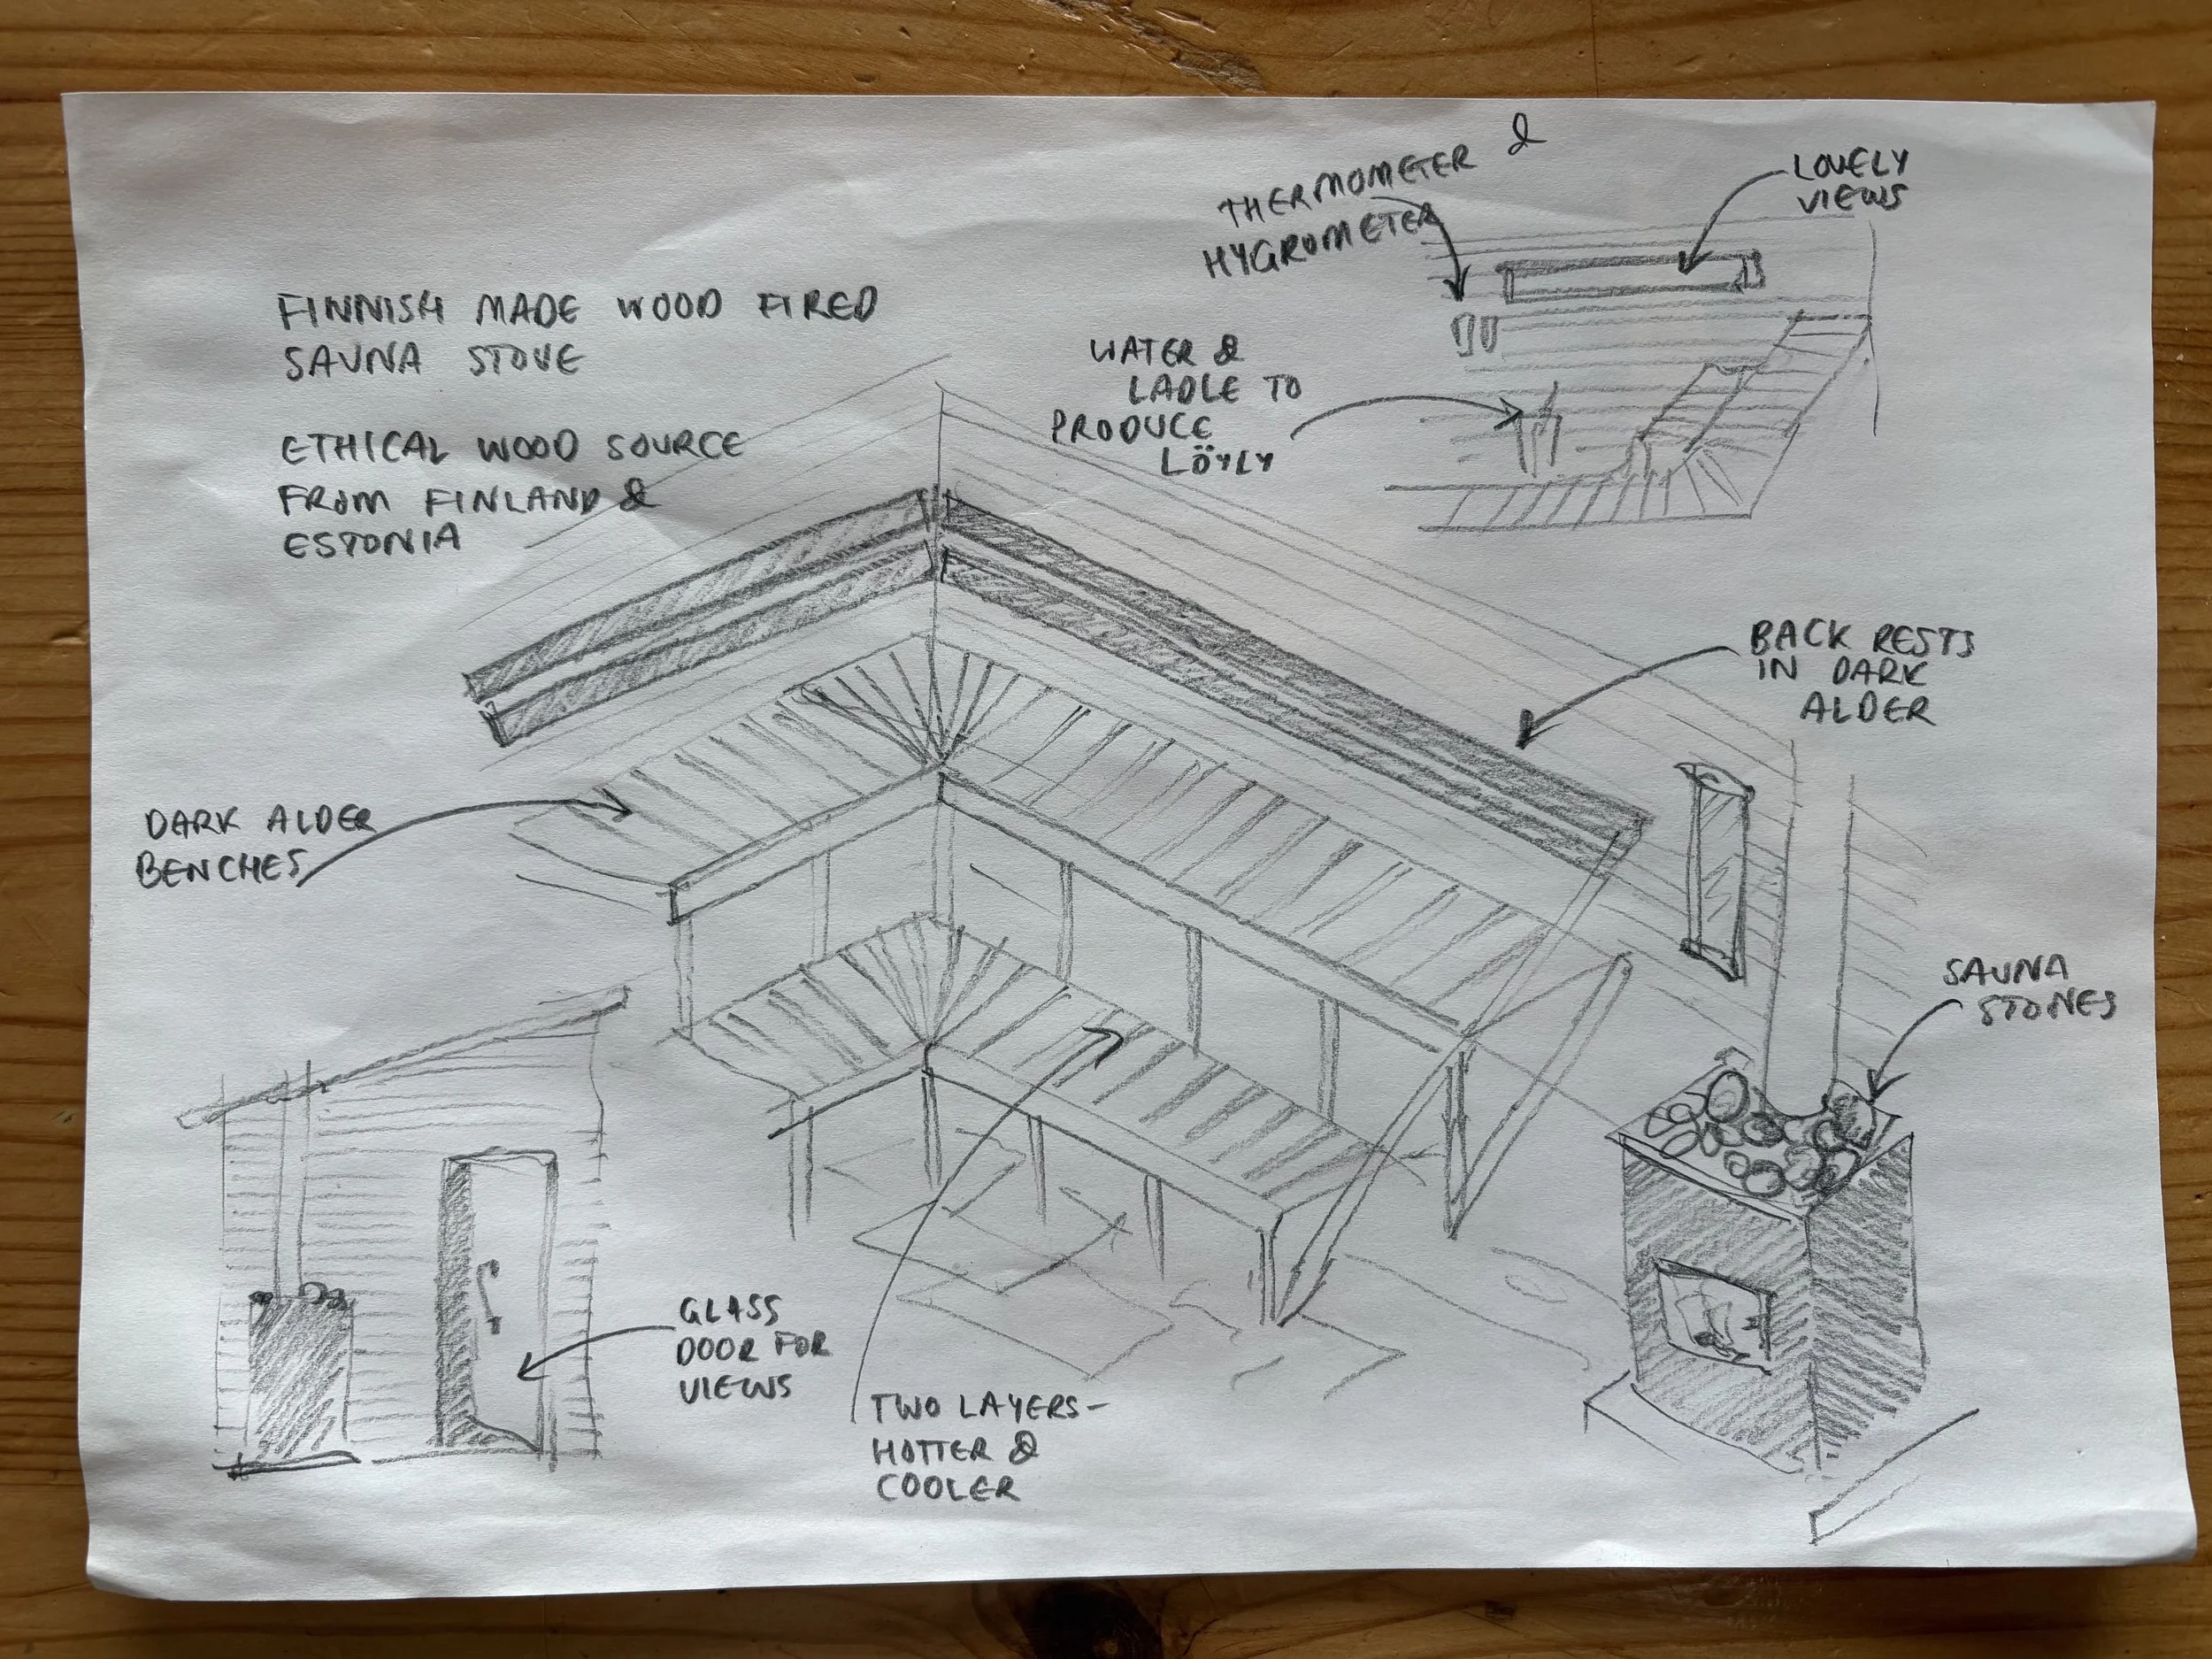 FINNISH MADE WOOD FIRED
SAUNA STOVE
ETHICAL WOOD SOURCE
FROM FINLAND &
ESTONIA
THERMOMETER &
HYGROMETER
LOVELY
VIEWS
WATER &
LADLE TO
PRODUCE
LÖYLY
BACK RESTS
IN DARK
ALDER
DARK ALDER
BENCHES
SAUNA
STONES
GLASS
DOOR FOR
VIEWS
TWO LAYERS-
HOTTER &
COOLER